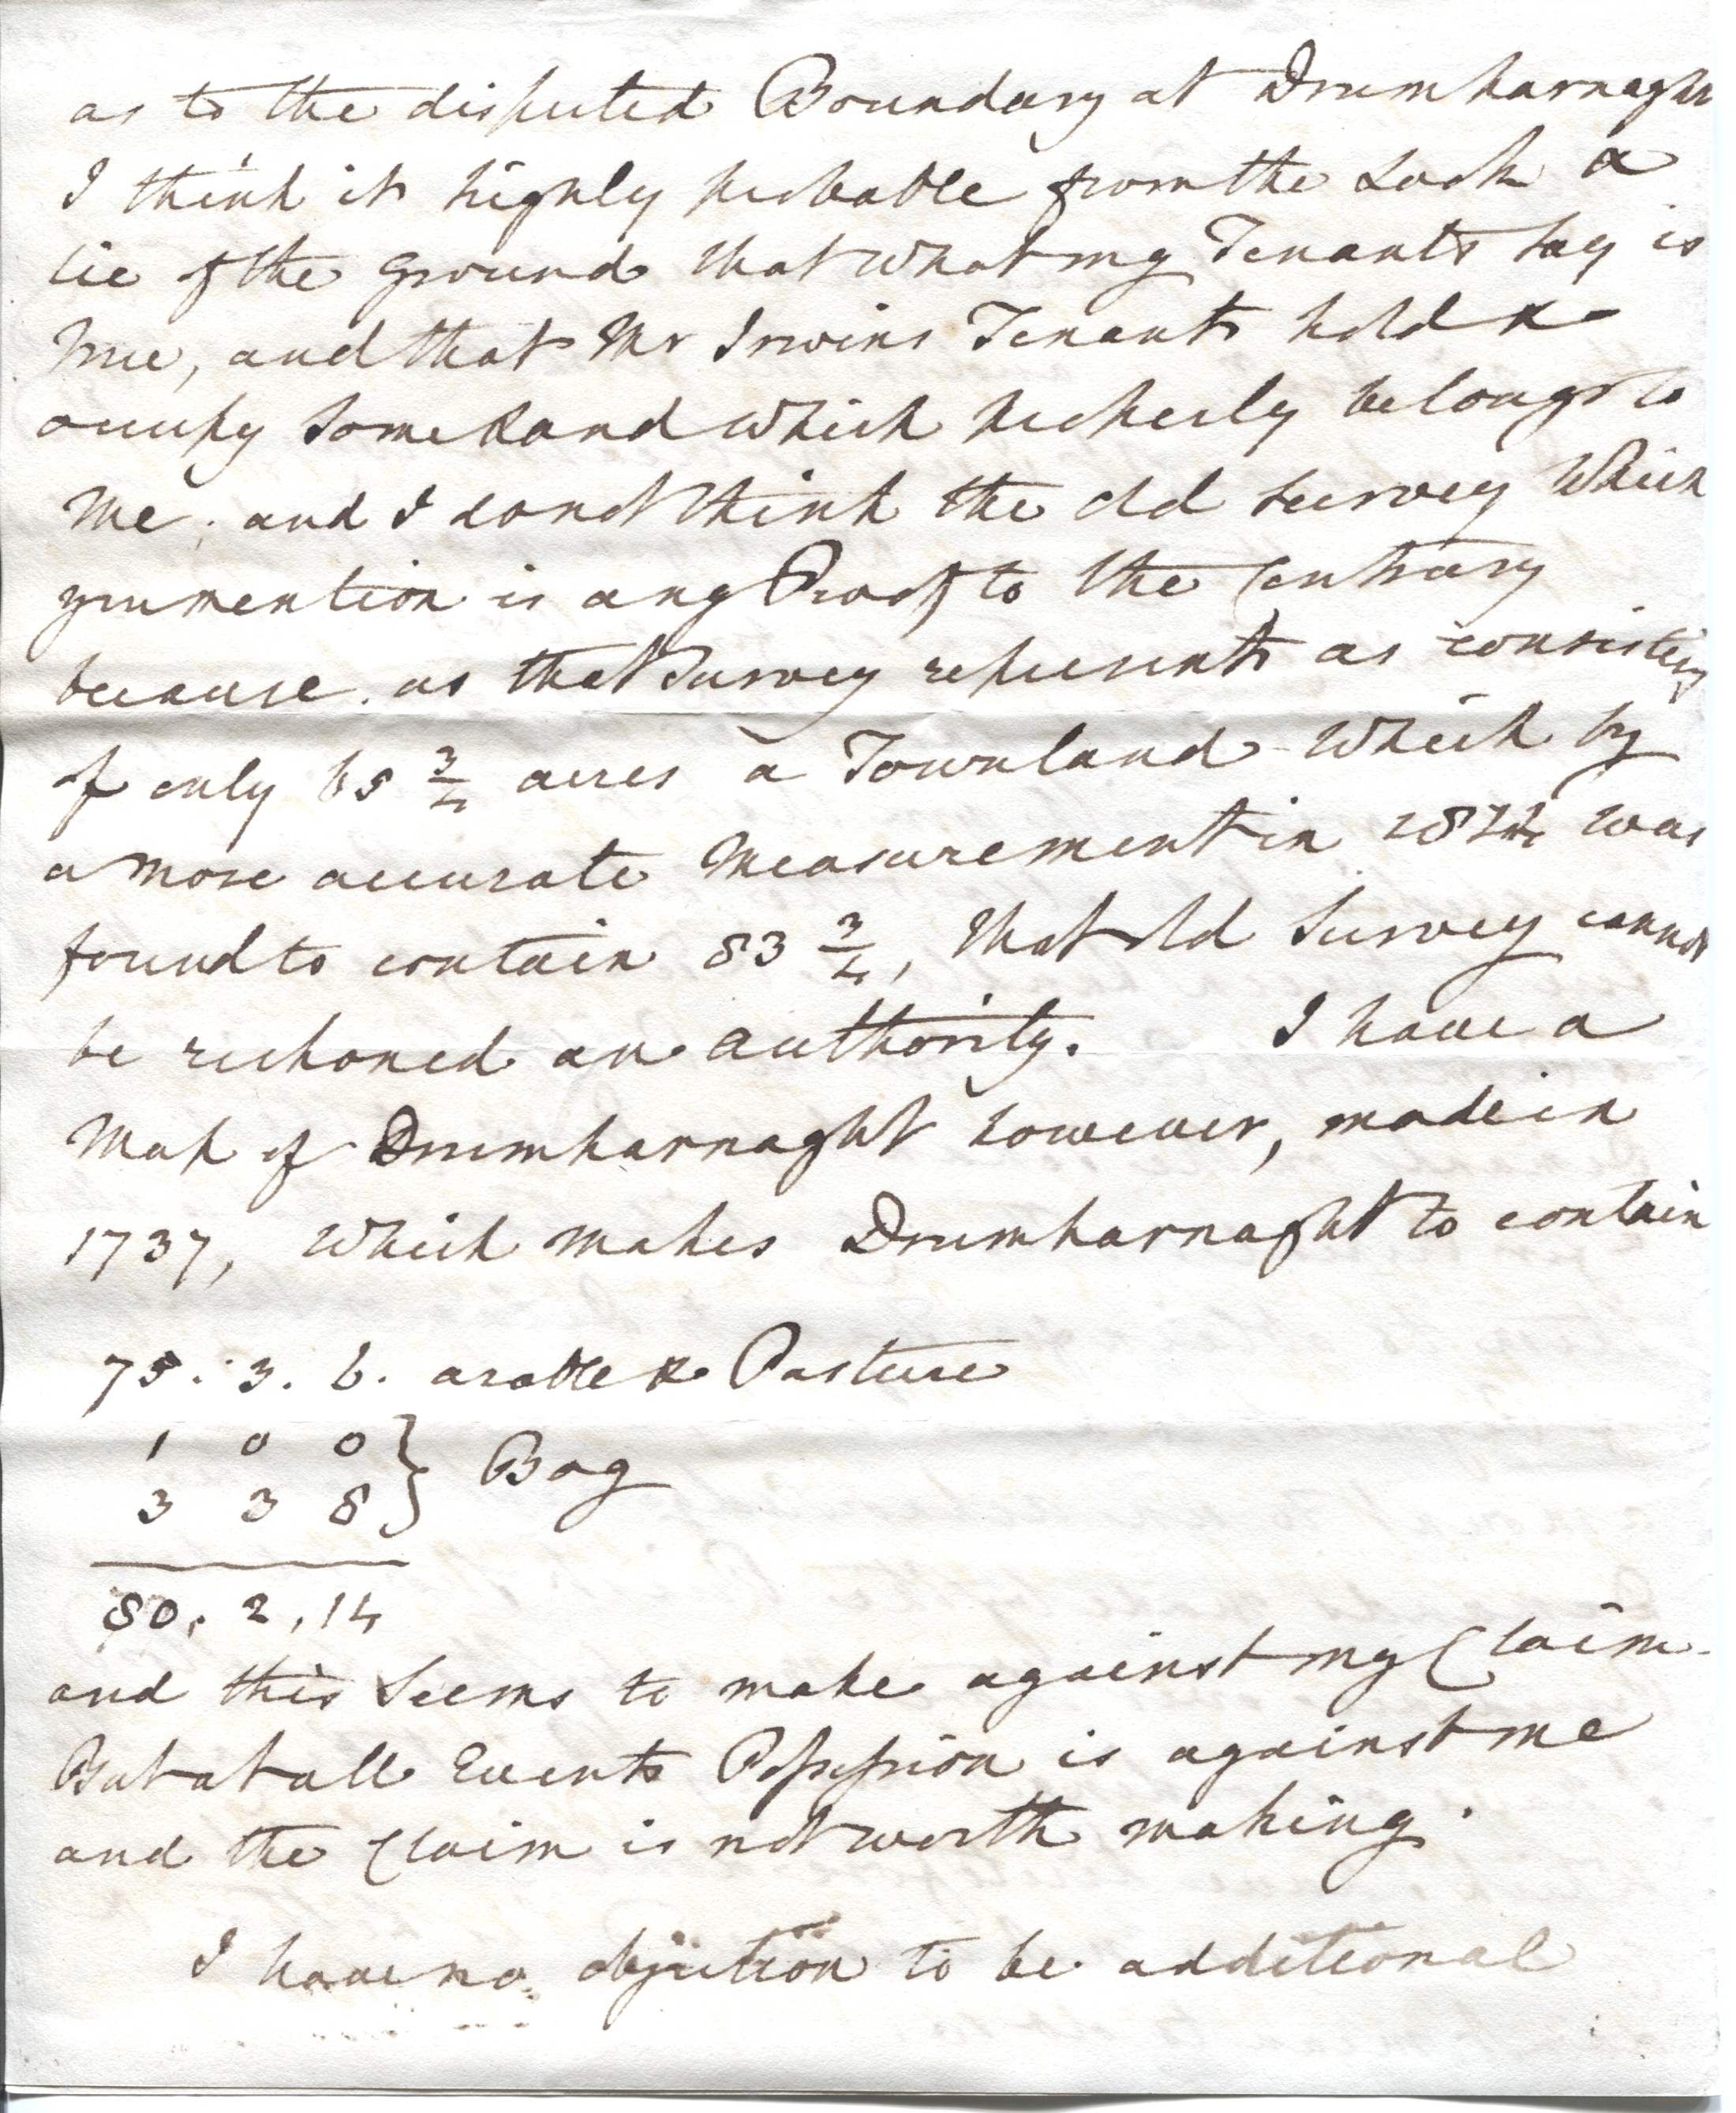 as to the disputed Boundary at Drumharnaght
I think it highly probable from the Look &
lie of the ground that what my Tenants say is
true, and that Mr Irwins Tenants hold &
occupy some Land which properly belongs to
me, and I do not think the old survey which
you mention is any Proof to the Contrary
because, as that Survey represents as consisting
of only 65 3/4 acres a Townland which by
a more accurate Measurement in was
found to contain 83 3/4, that old Survey cannot
be reckoned an authority. I have a
Map of Drumharnaght however, made in
1737, which makes Drumharnaght to contain
75. 3. 6. arable & Pasture
1 0 0 }
3 3 8 } Bog
80. 2, 14
and this Seems to make against my Claim.
But at all Events Possession is against me
and the Claim is not worth making.
I have no objection to be additional